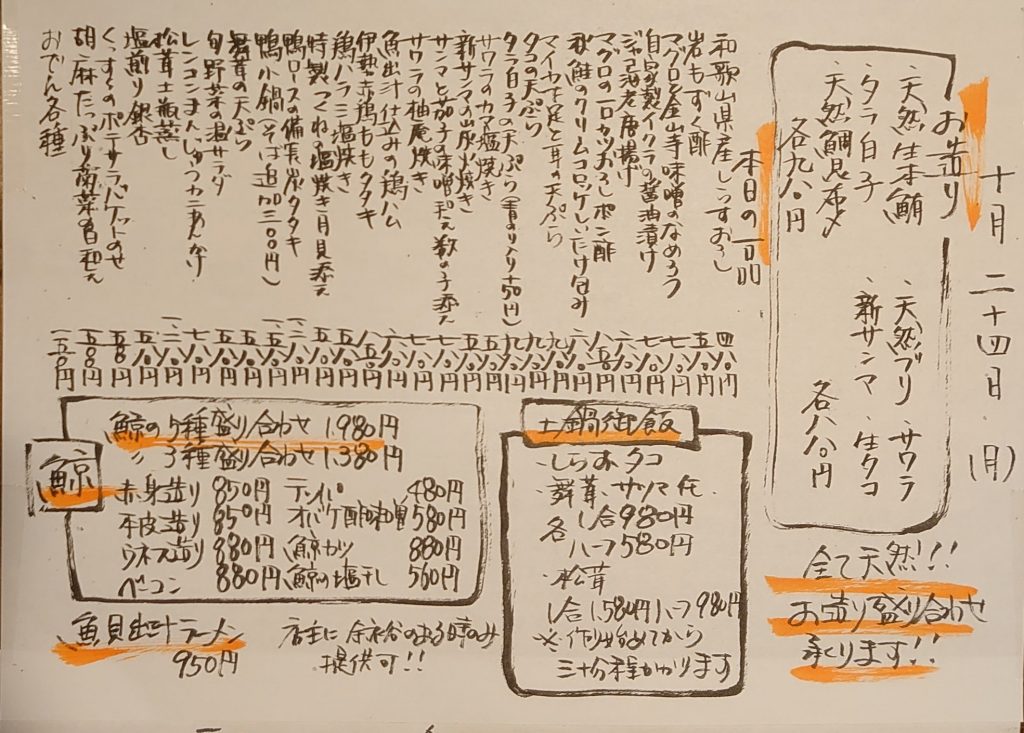 十月二十四日(月)
お造り
・天然生本鮪
・タラ白子
・天然鯛昆布〆
各九八〇円
・天然ブリ ・サワラ
・新サンマ ・生タコ
各八八〇円
全て天然!!!
お造り盛り合わせ
承ります!!
本日の一品
和歌山県産しらすおろし
岩もずく酢
マグロと金山寺味噌のなめろう
自家製イクラの醤油漬け
ジャコ海老唐揚げ
マグロの一口カツおろしポン酢
秋鮭のクリームコロッケしいたけ包み
マイカゲ足と耳の天ぷら
タコの天ぷら
タラ白子の天ぷら(青のり入り+50円)
サワラのカマ塩焼き
新サンマの炭火焼き
サンマと茄子の味噌
サワラの柚庵焼き
魚出汁仕込みの鶏ハム
伊勢赤鶏ももタタキ
鶏ハラミ塩焼き
特製つくねの塩焼き月見添え
鴨ロースの備長炭タタキ
鴨小鍋(そば追加三〇〇円)
舞茸の天ぷら
旬野菜の温サラダ
レンコンまんじゅうカニあんかけ
松茸土瓶蒸し
塩煎り銀杏
くんすくのポテサラバケットのせ
胡麻たっぷり菊菜の白和え
おでん各種
土鍋御飯
・しらす、タコ
・舞茸、サツマイモ
各 1合980円
ハーフ580円
・松茸
1合1,580円ハーフ980円
※作り始めてから
三十分程かかります
鯨
鯨の5種盛り合わせ 1,980円
〃 3種盛り合わせ 1,380円
赤身造り 850円 テッパ 480円
本皮造り 850円 オバケ酢味噌 580円
ウネス造り 880円 鯨カツ 880円
ベーコン 880円 鯨の塩干し 560円
魚貝出汁ラーメン
950円
店主に余裕のある時のみ
提供可!!